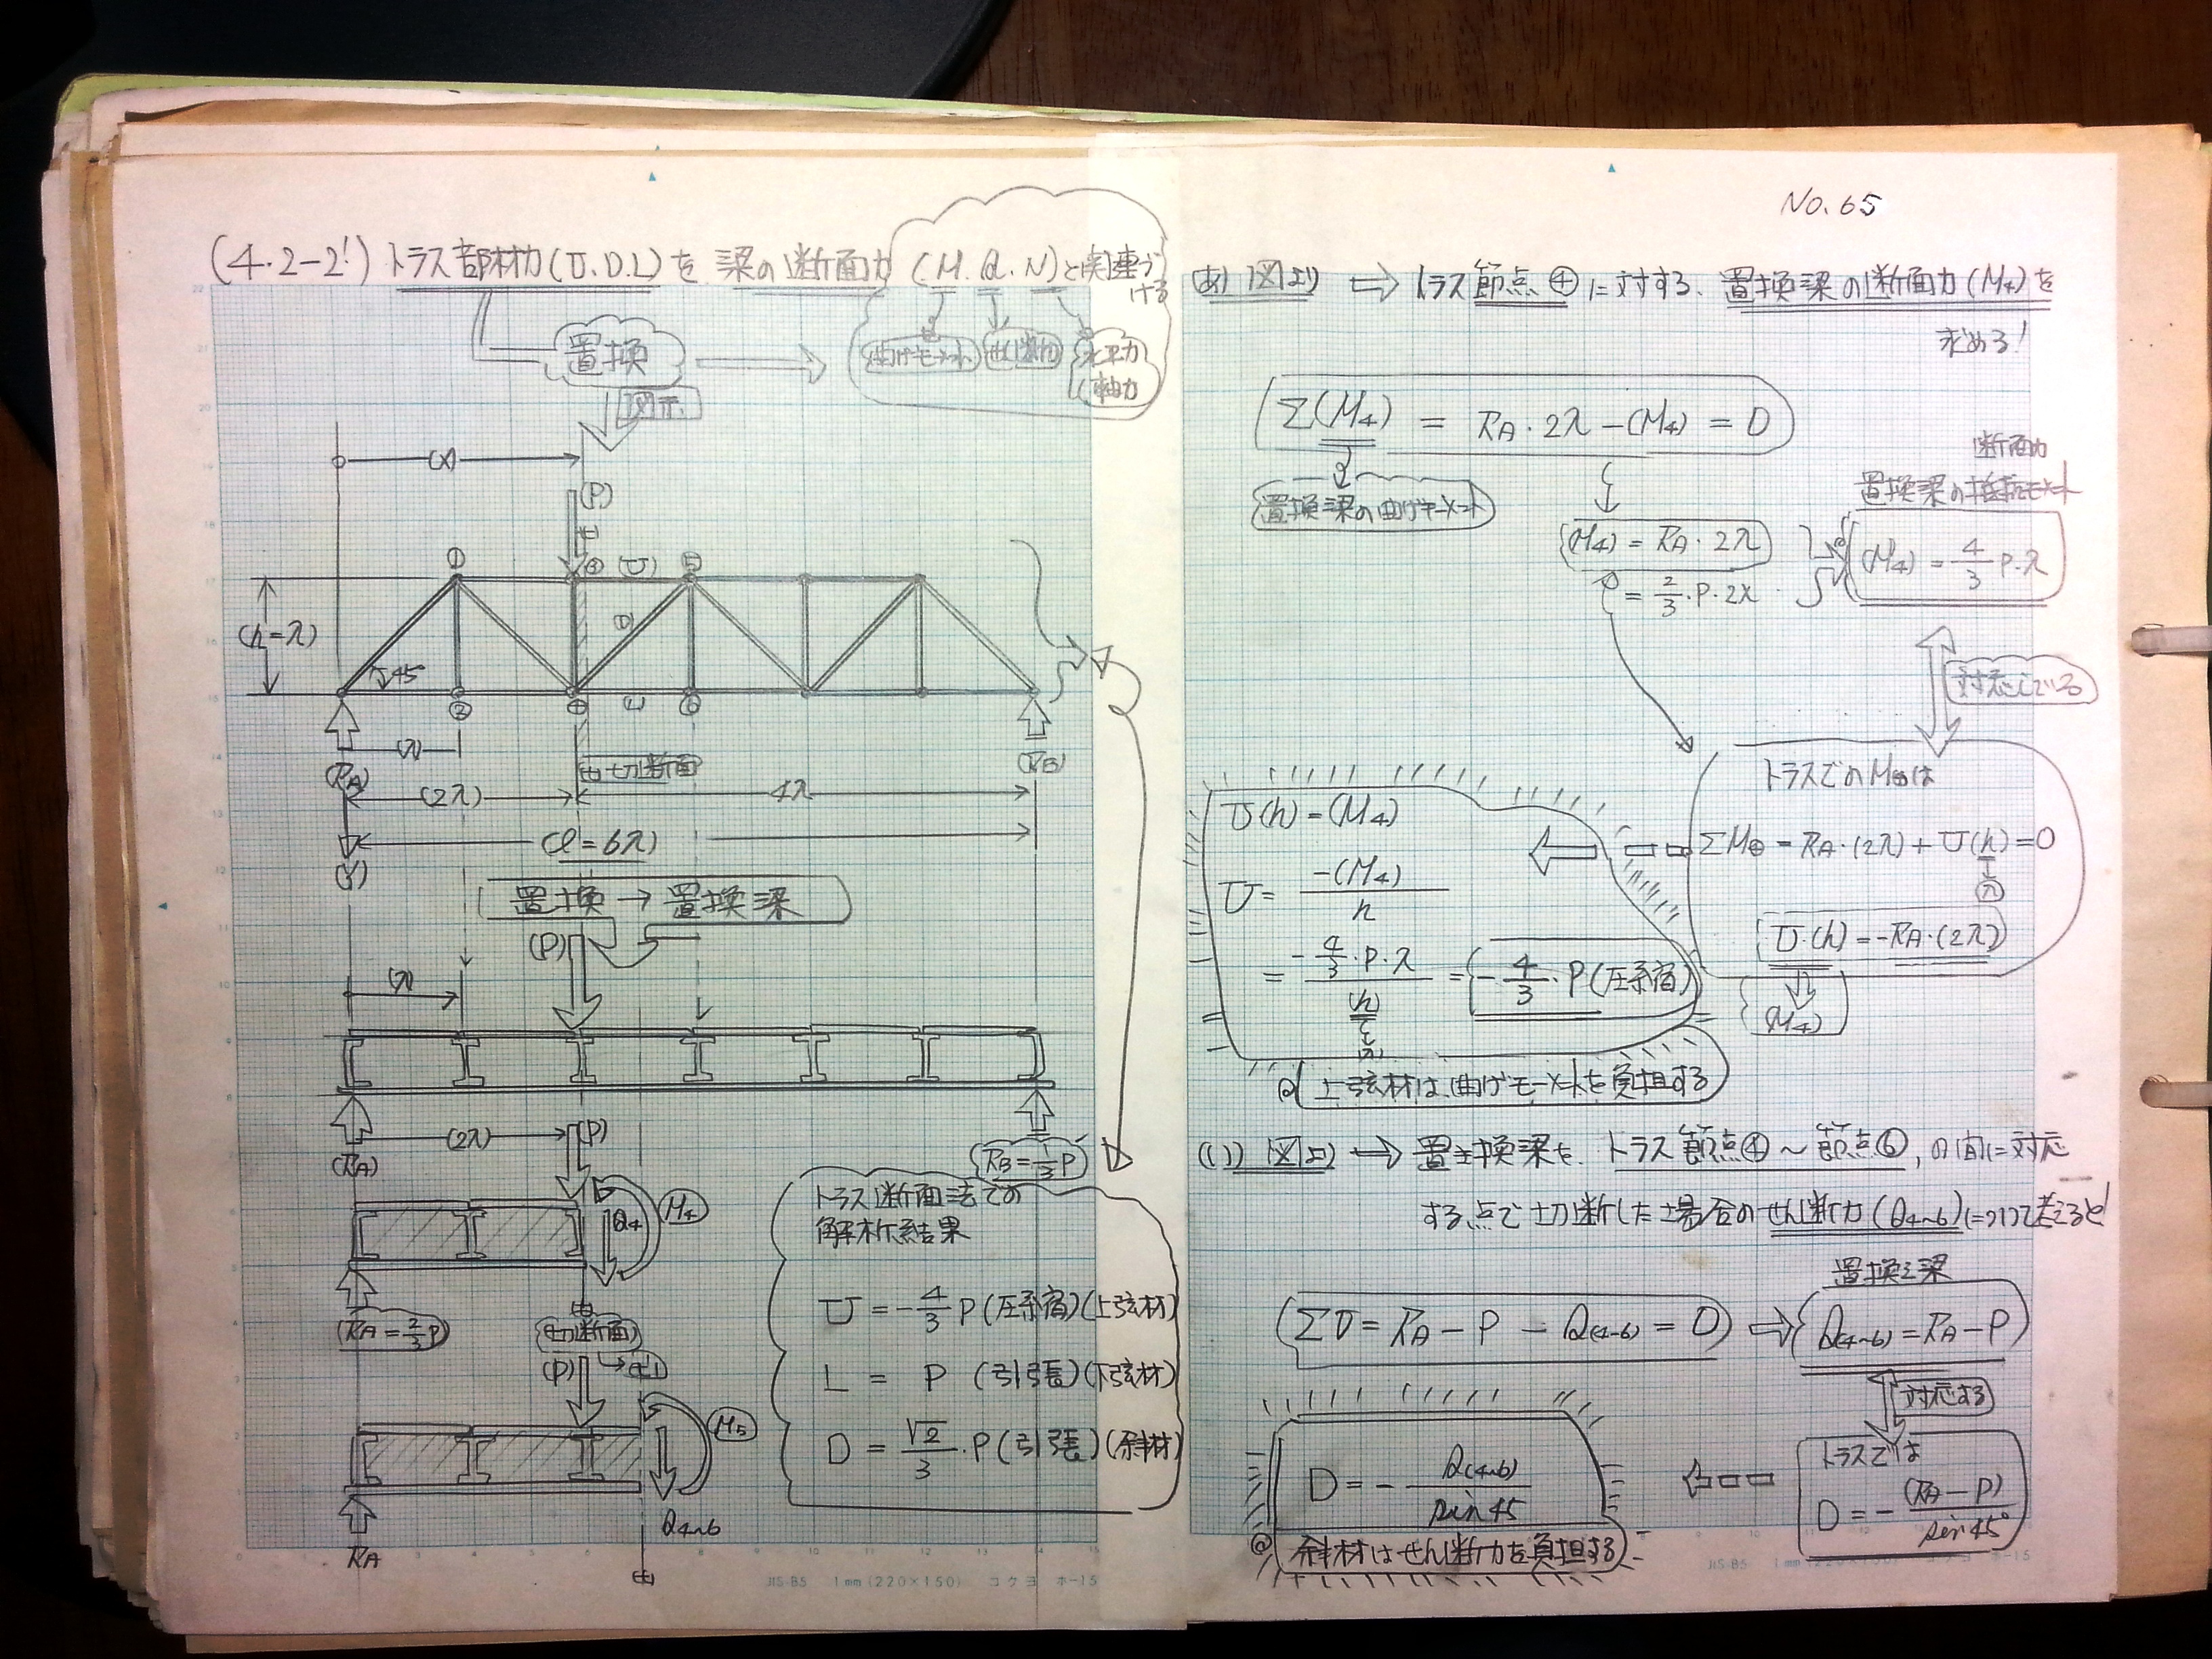 No.65
(4・2-2!) トラス部材力(U.D.L)を 梁の断面力(M.Q.N)と関連づける
置換
曲げモーメント
せん断力
水平力
軸力
図示
(x)
(P)
① ③ (U) ⑤
(D)
(h=λ)
45°
② ④ (L) ⑥
(λ)
切断面
(RA)
(RB)
(2λ)
4λ
(ℓ=6λ)
(y)
置換→置換梁
(P)
(λ)
(2λ)
(P)
(RA)
(RB=1/3P)
Q4
M4
(RA=2/3P)
切断面
(P)
M5
Q4~6
RA
トラス断面法での
解析結果
U=-4/3P(圧縮)(上弦材)
L = P (引張)(下弦材)
D = √2/3・P(引張)(斜材)
JIS-B5 1mm(220×150) コクヨ ホ-15
(あ) 図より ⇒ トラス節点④に対する、置換梁の断面力(M4)を
求める!
Σ(M4) = RA・2λ-(M4) = 0
置換梁の曲げモーメント
断面力
置換梁の抵抗モーメント
(M4)=RA・2λ
=2/3・P・2λ
(M4)=4/3P・λ
対応している
トラスでのM④は
ΣM④=RA・(2λ)+U(h)=0
(λ)
U・(h)=-RA・(2λ)
(M4)
U(h)=(M4)
U=-(M4)/h
=-4/3・P・λ/(h)=-4/3・P(圧縮)
(λ)
@ 上弦材は、曲げモーメントを負担する
(い) 図より → 置換梁を、トラス節点④~節点⑥、の間に対応
する点で切断した場合のせん断力(Q4~6)について考えると
置換梁
ΣV=RA-P-Q(4~6)=0 ⇒ Q(4~6)=RA-P
対応する
トラスでは
D=-(RA-P)/sin45°
D=-Q(4~6)/sin45
@ 斜材はせん断力を負担する
JIS-B5 1mm(220×150) コクヨ ホ-15